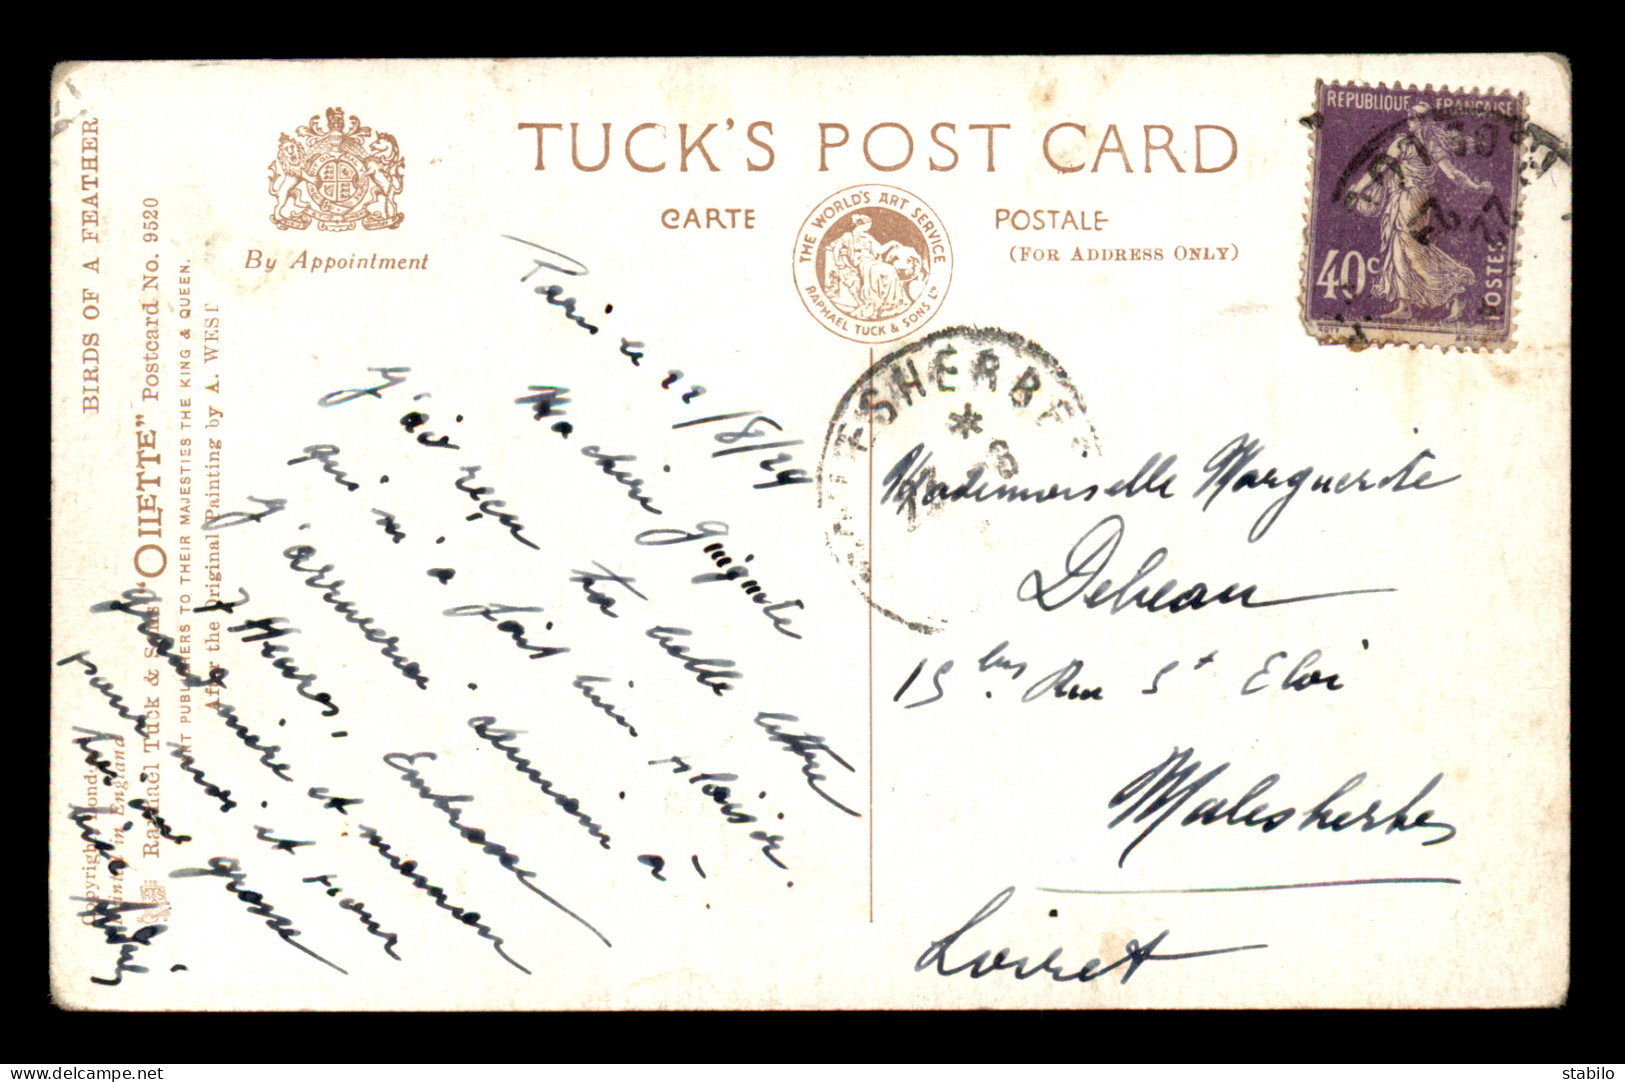 TUCK'S POST CARD
CARTE POSTALE
(FOR ADDRESS ONLY)
By Appointment
THE WORLD'S ART SERVICE
RAPHAEL TUCK & SONS LD
BIRDS OF A FEATHER
Raphael Tuck & Sons' "OILETTE" Postcard No. 9520
ART PUBLISHERS TO THEIR MAJESTIES THE KING & QUEEN.
After the Original Painting by A. WEST
Copyright London
Printed in England
REPUBLIQUE FRANÇAISE
40c
POSTES
Paris le 22/8/29
Ma chéri guignete
J'ai reçu ta belle lettre
qui m'a fait bien plaisir.
J'arriverai demain à
7 Heures. Embrasse
grand mère et maman
pour moi et pour
toi une grosse
bise
Mademoiselle Marguerite
Debeau
15 bis Rue St Eloi
Malesherbes
Loiret
stabilo